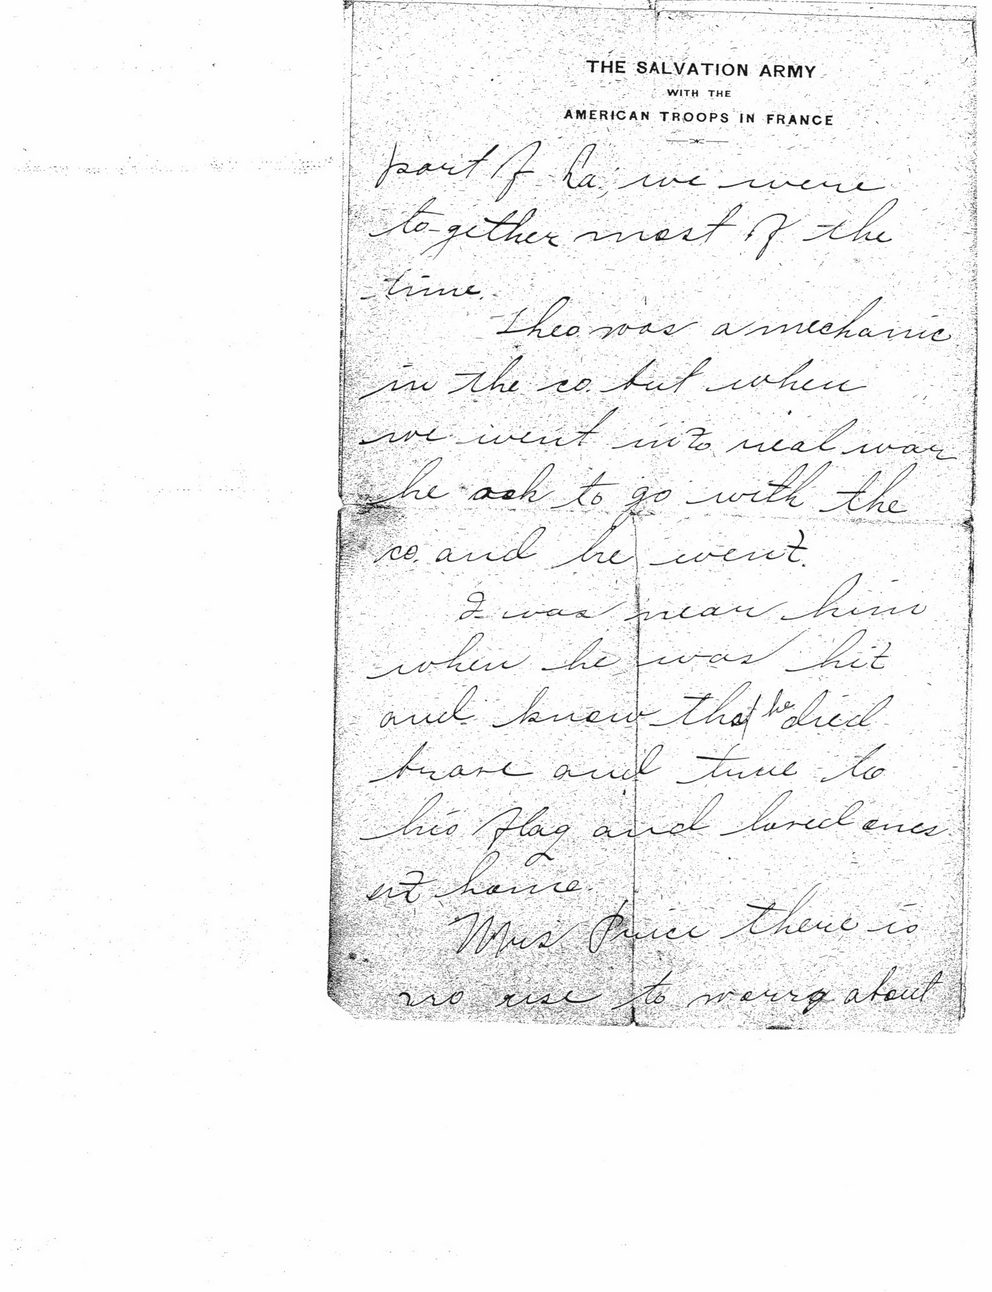 THE SALVATION ARMY
WITH THE
AMERICAN TROOPS IN FRANCE
part of La, we were
to-gether most of the
time.
Theo was a mechanic
in the co. but when
we went into real war
he ask to go with the
co. and he went.
I was near him
when he was hit
and know that he died
brave and true to
his flag and loved ones
at home.
Mrs Price there is
no use to worry about